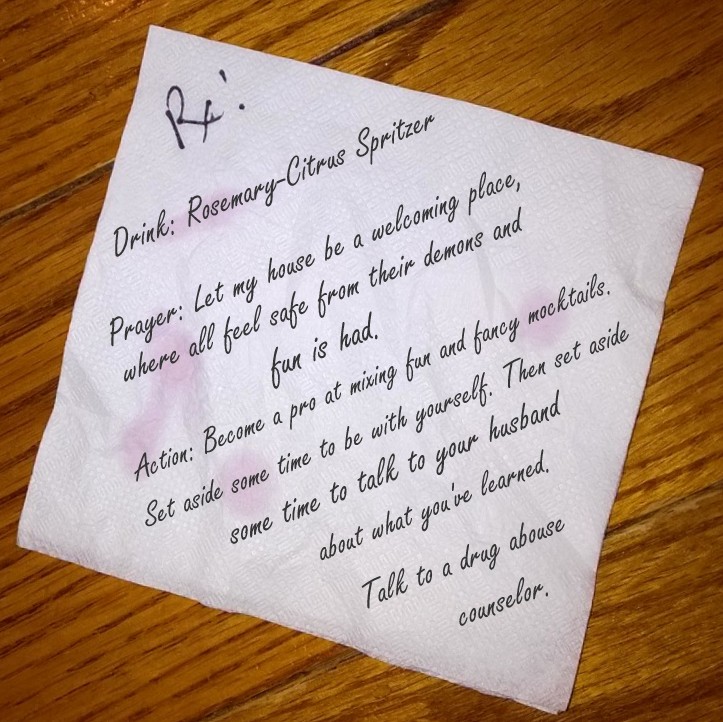 Rx:
Drink: Rosemary-Citrus Spritzer
Prayer: Let my house be a welcoming place,
where all feel safe from their demons and
fun is had.
Action: Become a pro at mixing fun and fancy mocktails.
Set aside some time to be with yourself. Then set aside
some time to talk to your husband
about what you've learned.
Talk to a drug abouse
counselor.